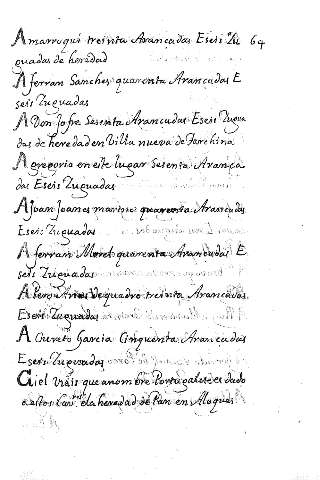 Amarroqui treinta Arancadas Eseis Zu 64
guadas de heredad
A ferran Sanches quarenta Arancadas E
seis Zuguadas
A Don Jofre Sesenta Arancadas Eseis Zugua
das de heredad en Villa nueva de Farchina
A gregoria en este lugar Sesenta Aranca
das Eseis Zuguadas
A Joan Joanes marino quarenta Arancadas
Eseis Zuguadas
A ferran Moret quarenta Arancadas E
seis Zuguadas
A Pero Arias de quadro treinta Arancadas
Eseis Zuguadas
A Garcia Cinquenta Arancadas
Eseis Zuguadas
que anombre Portugalete es dado
a estos ela heredad de Pan en Aluques